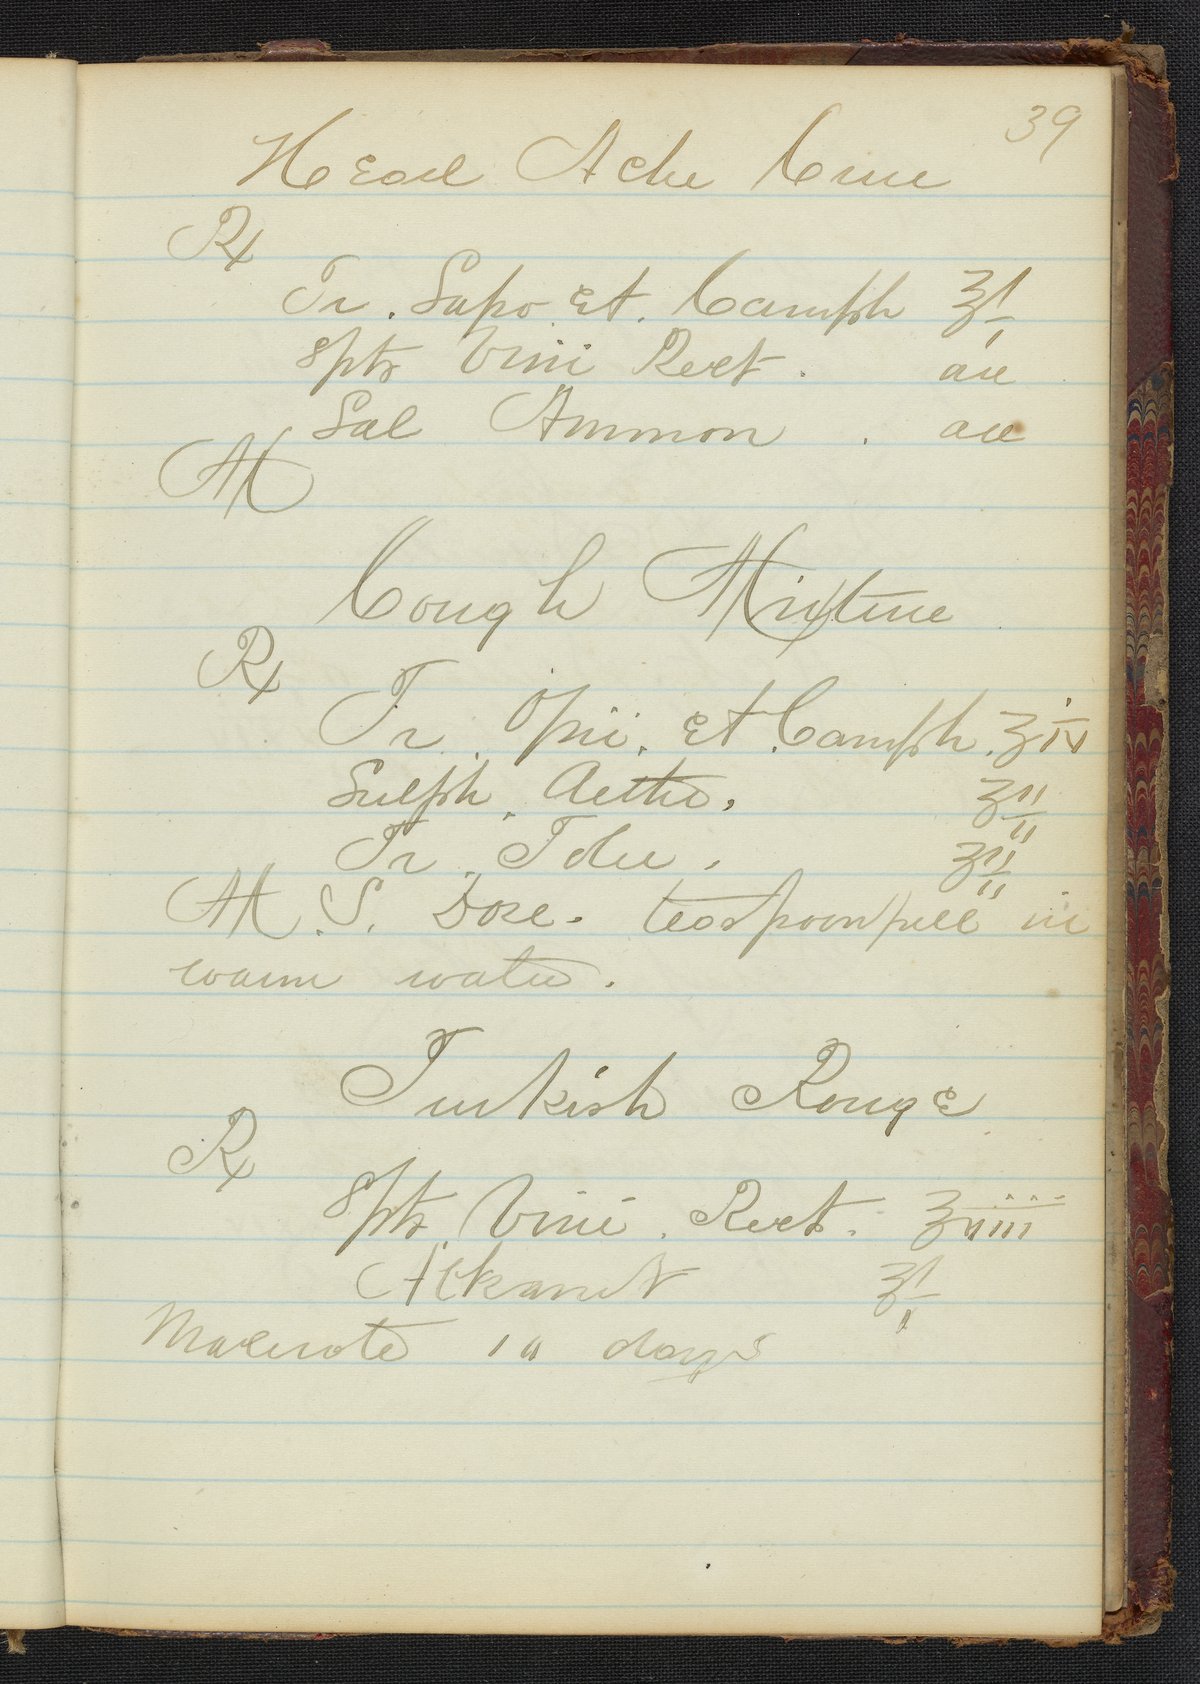 39
Head Ache Cure
℞
Tr. Sapo et. Camph ℥i
Spts Vini Rect. aa
Sal Ammon. aa
M
Cough Mixture
℞
Tr. Opii. et Camph. ℥iv
Sulph. Aether. ℥ii
Tr. Tolu. ℥ii
M. S. Dose. teaspoonfull in
warm water.
Turkish Rouge
℞
Spts Vini. Rect.
Alkanet ℥i
Macerate 10 days